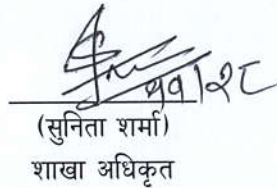 (सुनिता शर्मा)
शाखा अधिकृत